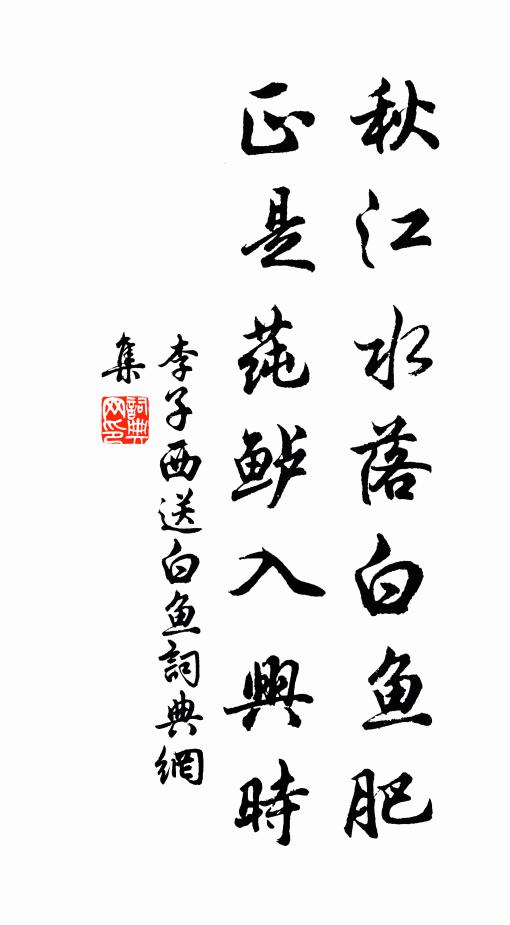 秋江水落白鱼肥
正是莼鲈入興時
李子西送白鱼詞典網
集
詞典网印